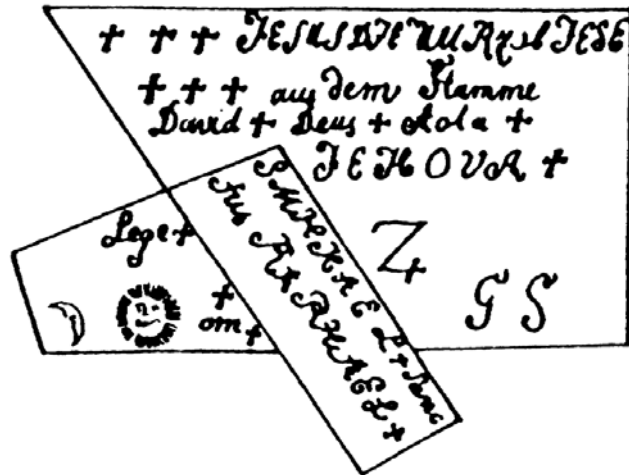 + + + JESUS DIE WURzel JESE
+ + + aus dem Stamme
David + Deus + Aola +
JEHOVA +
Z
G S
Lege +
+
om +
SMIHHAEL + Sanc
tus RAPHAEL +